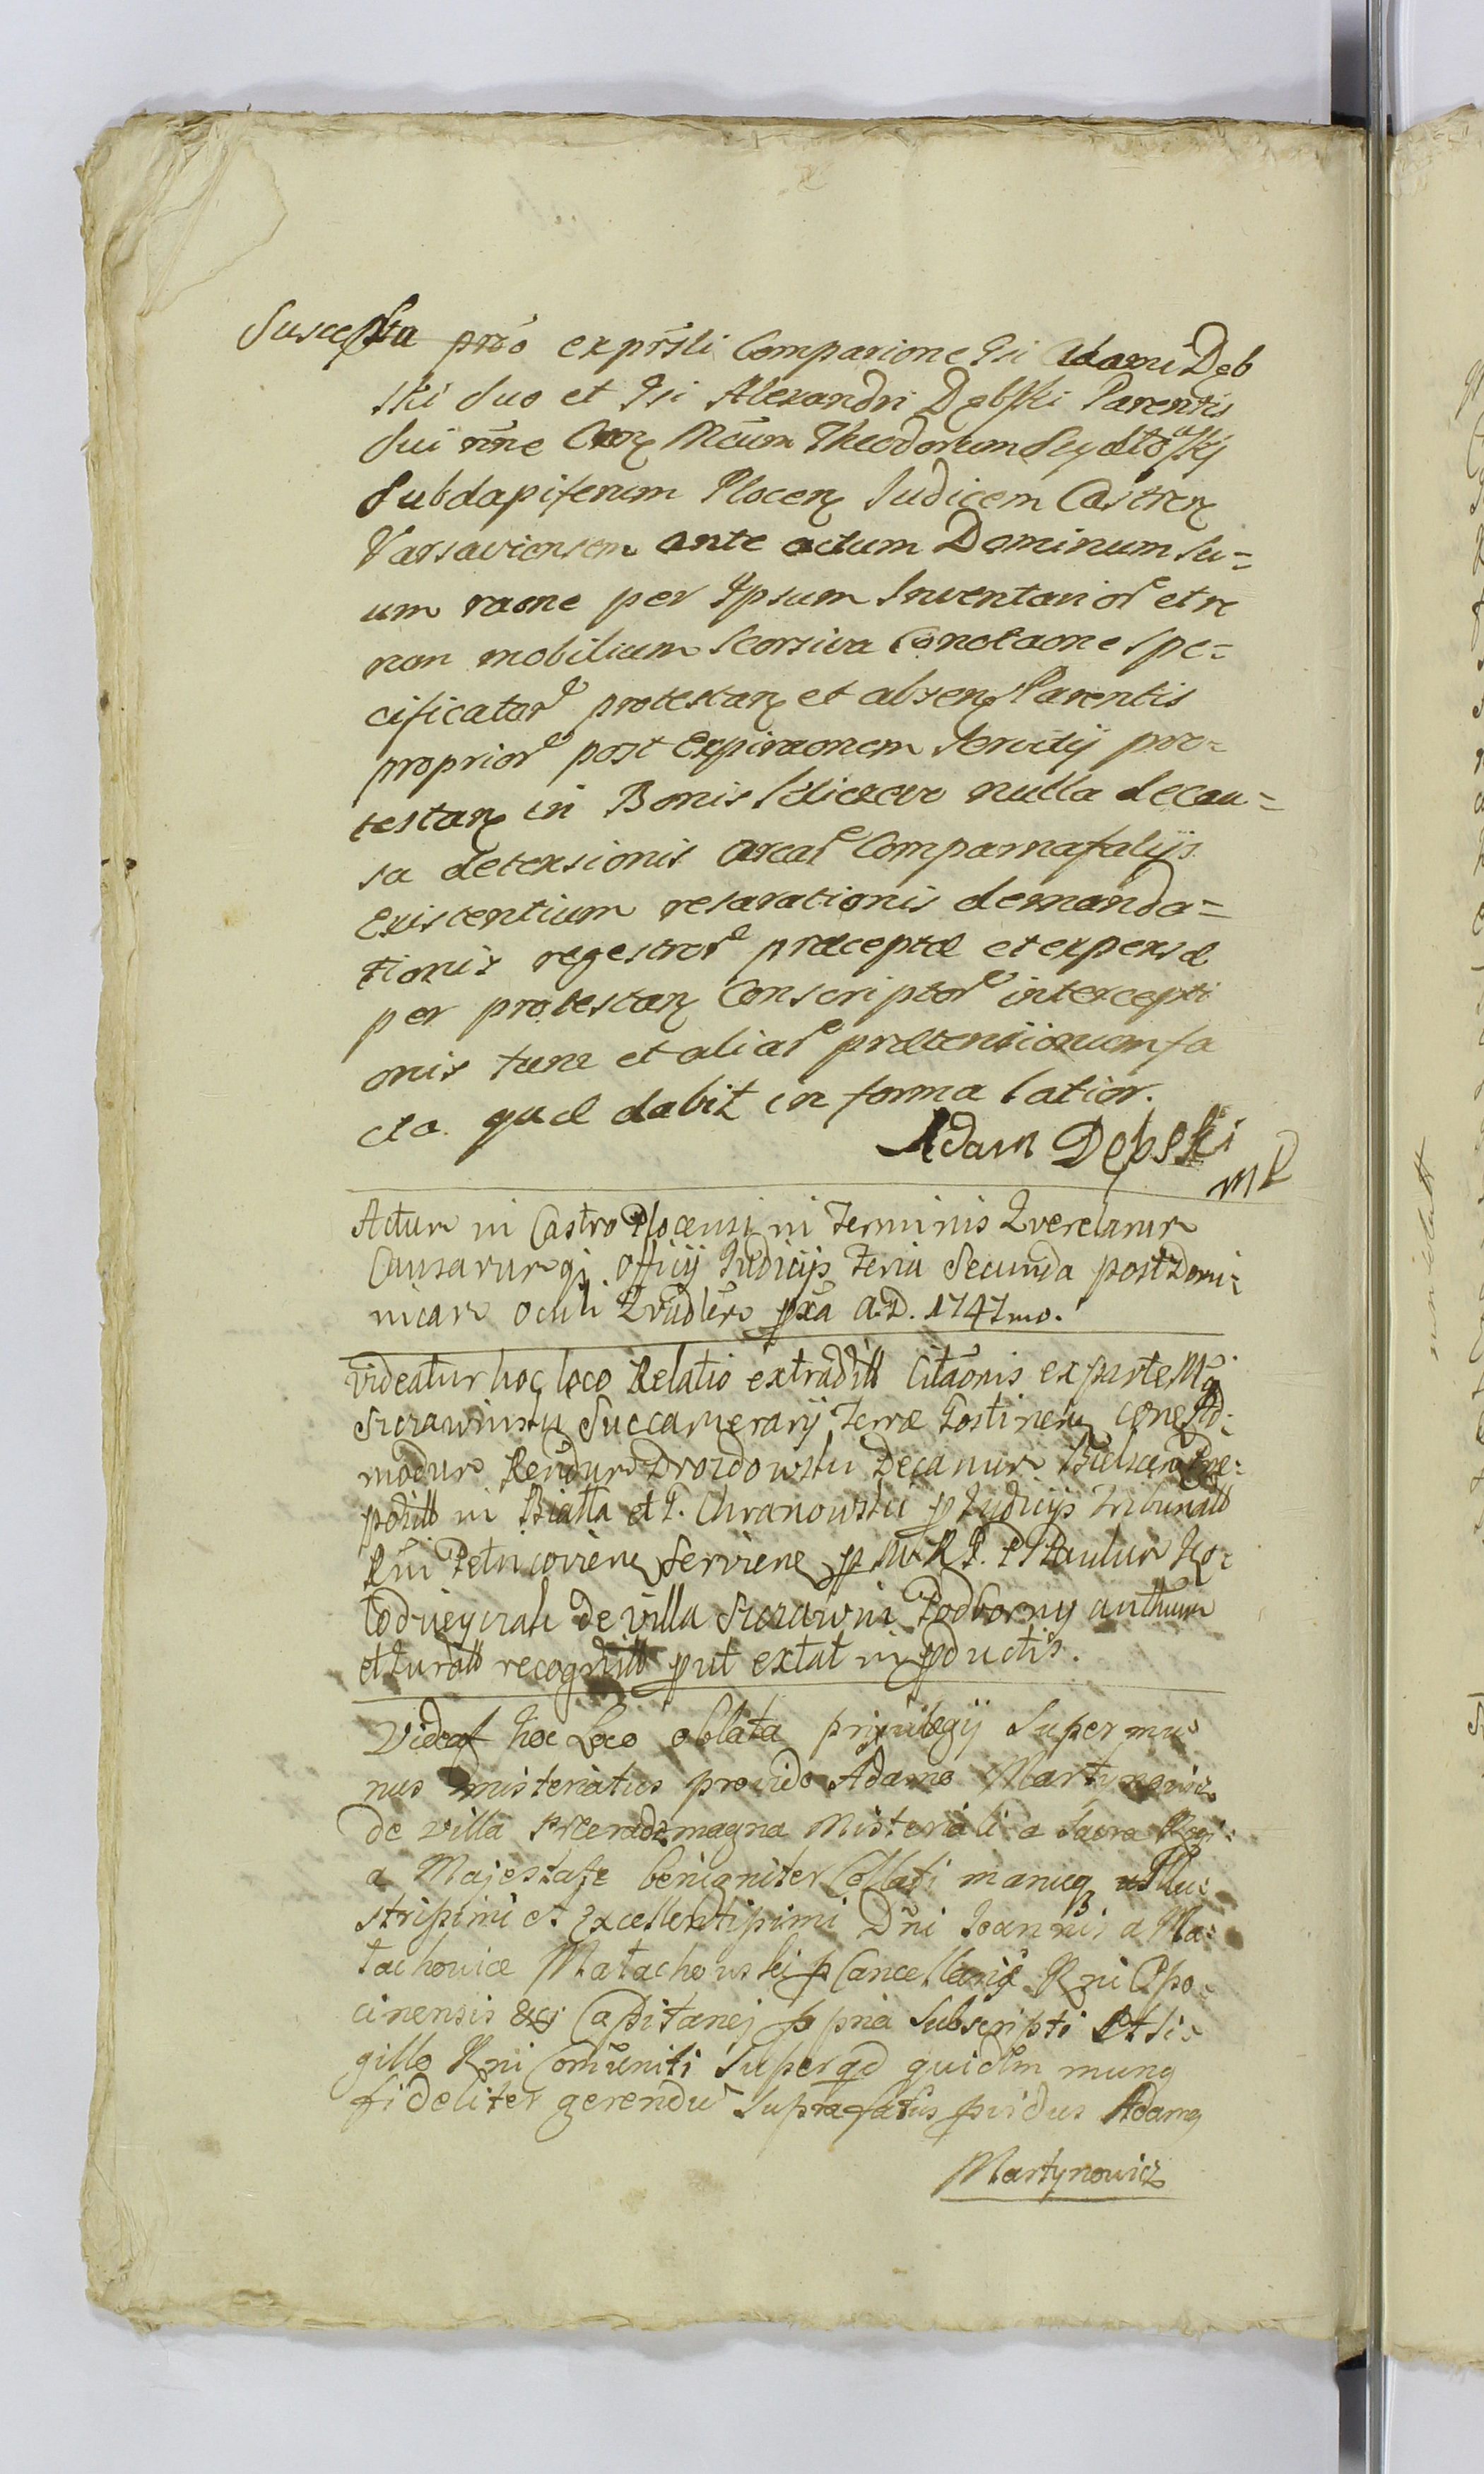 Suscepta prõo exprssli Comparione Gsi Adami Dęb
ski suo et Gsi Alexandri Dębski Parentis
sui nõne Cora Mcum Theodorum Szydłowskj
Subdapiferum Plocen Judicem Castren
Varsaviensem ante actum Dominum su=
um raone per Ipsum Inventarior et re
rum mobilium seorsiva Conotaone spe=
cificator protestan et absen Parentis
proprior post Expiraonem Servitij pro=
testan in Bonis nulla de cau=
sa detensionis arcar
Existentium reserationis demanda=
tionis regestror præceptæ et expensæ
per protestan Conscriptor intercepti
onis tunc et aliar prætensionum fa
cta quæ dabit in forma latior.
Adam Dębski
mp
Actum in Castro Plocensi in Terminis Querelarum
Causarum qz officij Judicijs Feria Secunda post Domi=
nicam Oculi Qvadlem pxa A.D. 1747mo.
Videatur hoc loco Relatio extraditt Citaonis ex parte Mg
Succamerarij Terræ Gostinen cone Ad=
modum Rendum Drozdowski Decanum Bielscen Præ=
positt in Biała et G. Chranowski p Judicijs Tribunatt
Rni Petricovien Servien p M. R P. Paulum Ko=
łodzieyczak de villa Szczawin Podborny authum
et juratt recognitt put extat in pductis.
Videat hoc Loco oblata privilegij super mu=
nus misteriatus provido Adamo Martynowicz
de villa magna Misteriali a Sacra Regi=
a Majestate benigniter Collati manuqz Illu=
strissimi et Excellentissimi Dñi Joannis a Ma=
łachowice Małachowski p Cancellarij Rni Opo=
cinensis &c Capitanej p pria Subscripti et Si=
gillo Rni Comũniti Super qd quidm munq
fideliter gerendũ suprafatus pvidus Adamq
Martynowicz